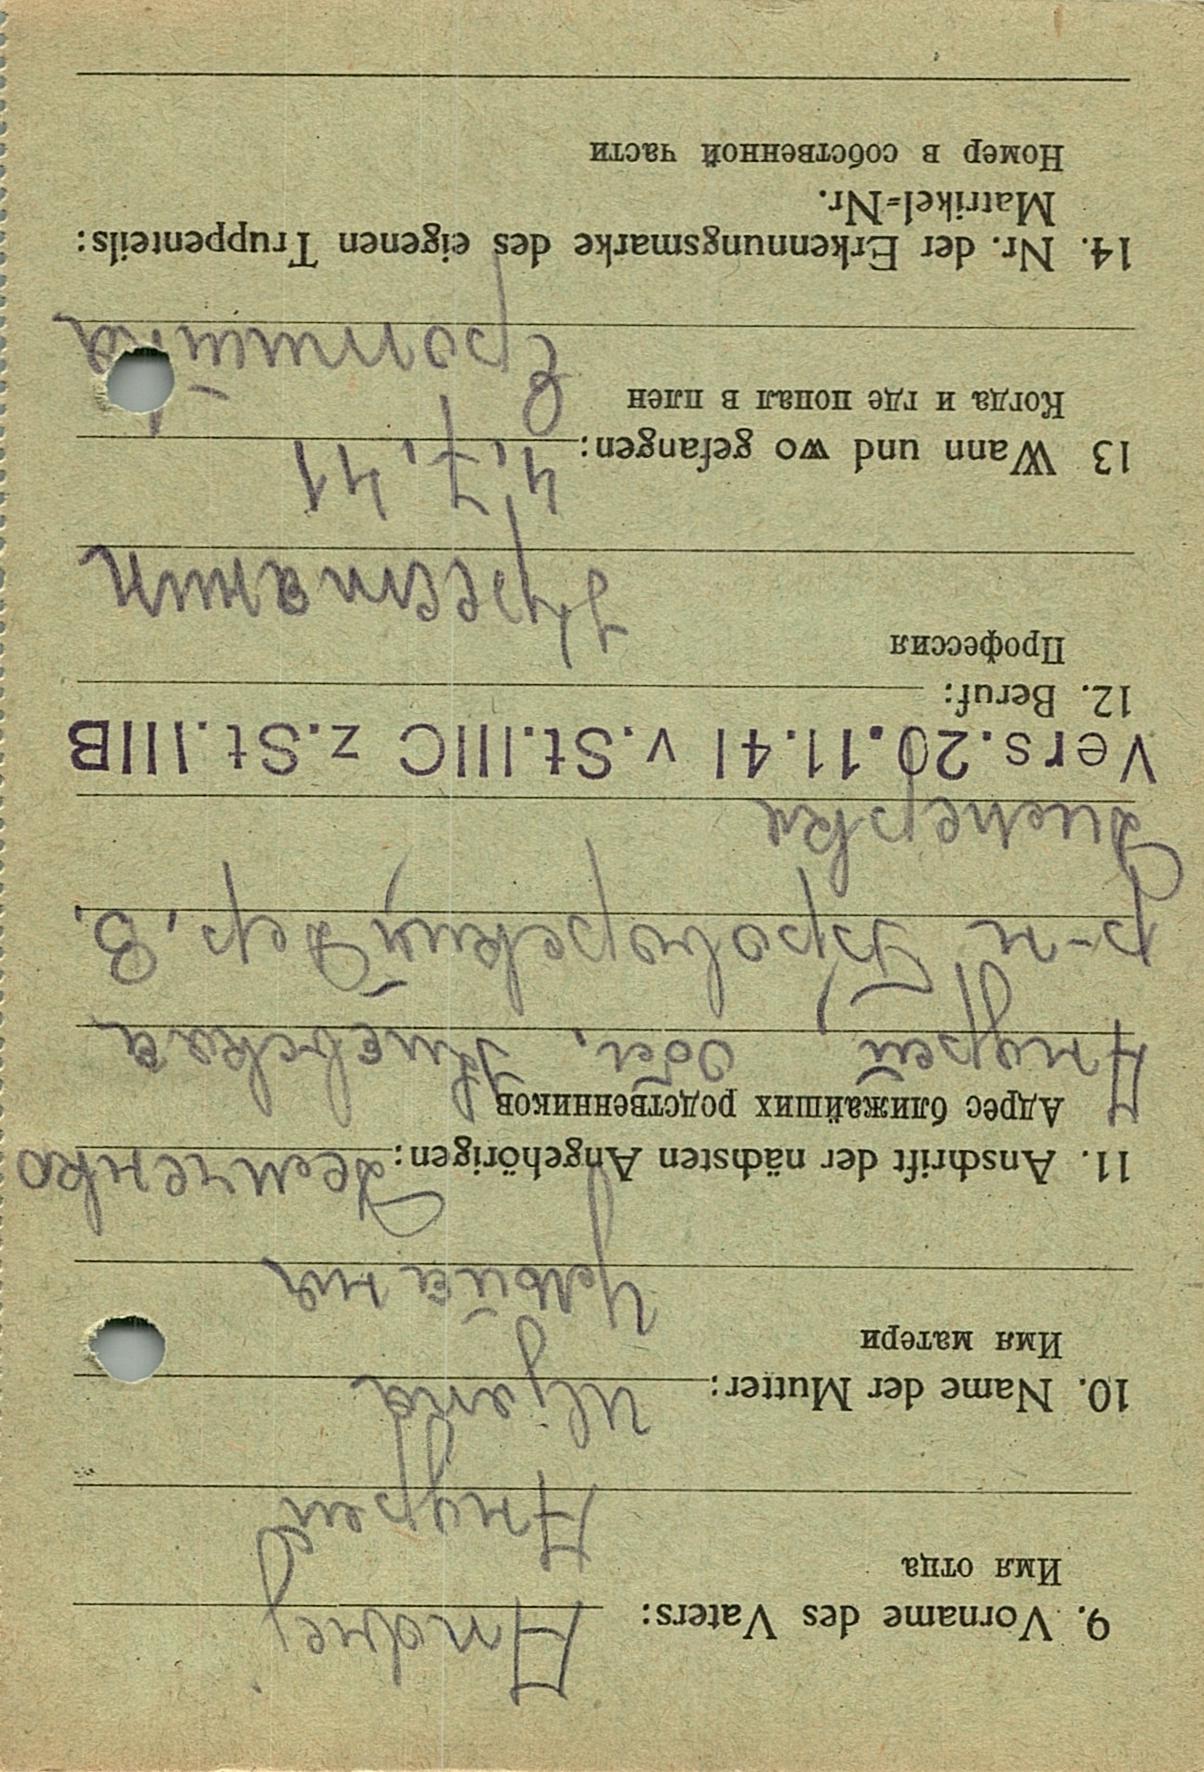 9. Vorname des Vaters: Andrej
Имя отца
Андрей
10. Name der Mutter: Uljana
Имя матери
Ульйана
11. Anschrift der nächsten Angehörigen: Демченко
Адрес ближайших родственников
Андрей, обл. Киевскаа
р-н Броворский Дер. В.
Димерка
Vers.20.11.41 v.St.IIIC z.St.IIIB
12. Beruf:
Профессия
13 Wann und wo gefangen: 4,7,41
Когда и где попал в плен
14. Nr. der Erkennungsmarke des eigenen Truppenteils:
Matrikel-Nr.
Номер в собственной части